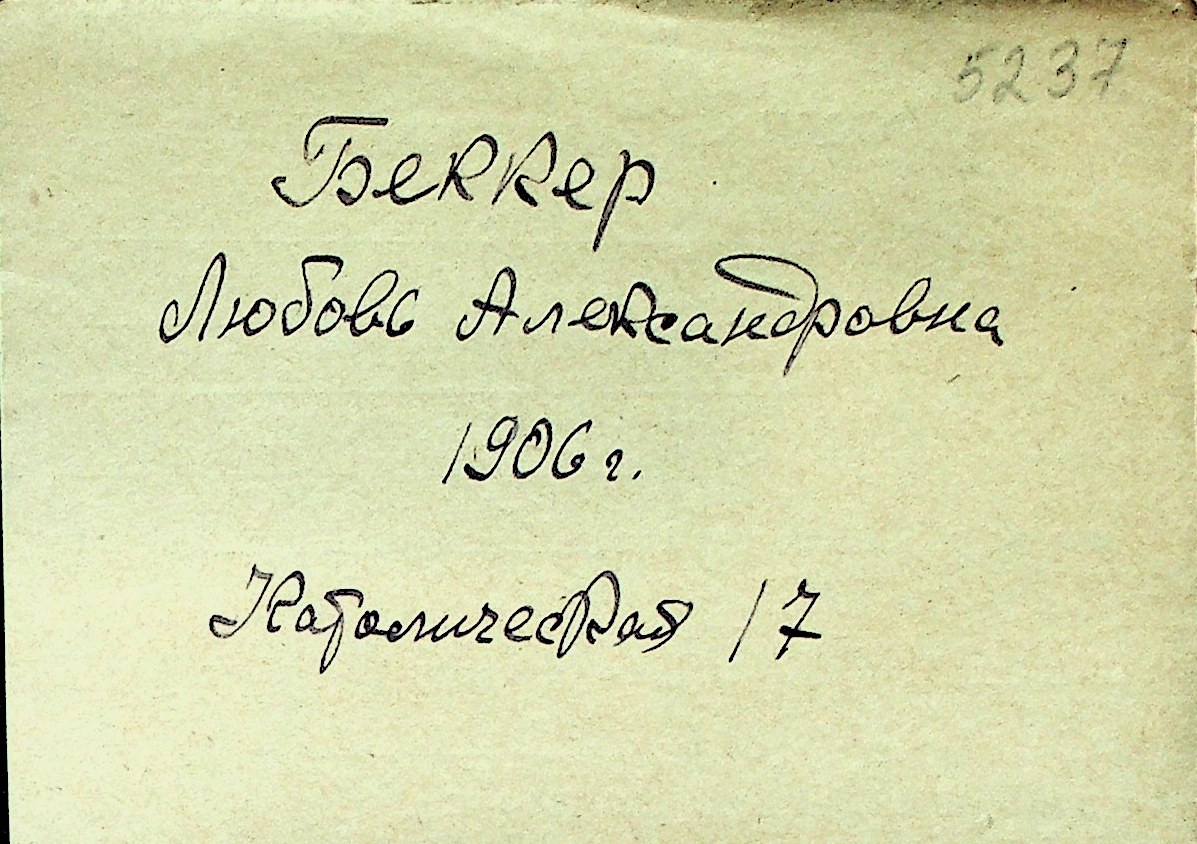 5237
Беккер
Любовь Александровна
1906 г.
Католическая 17